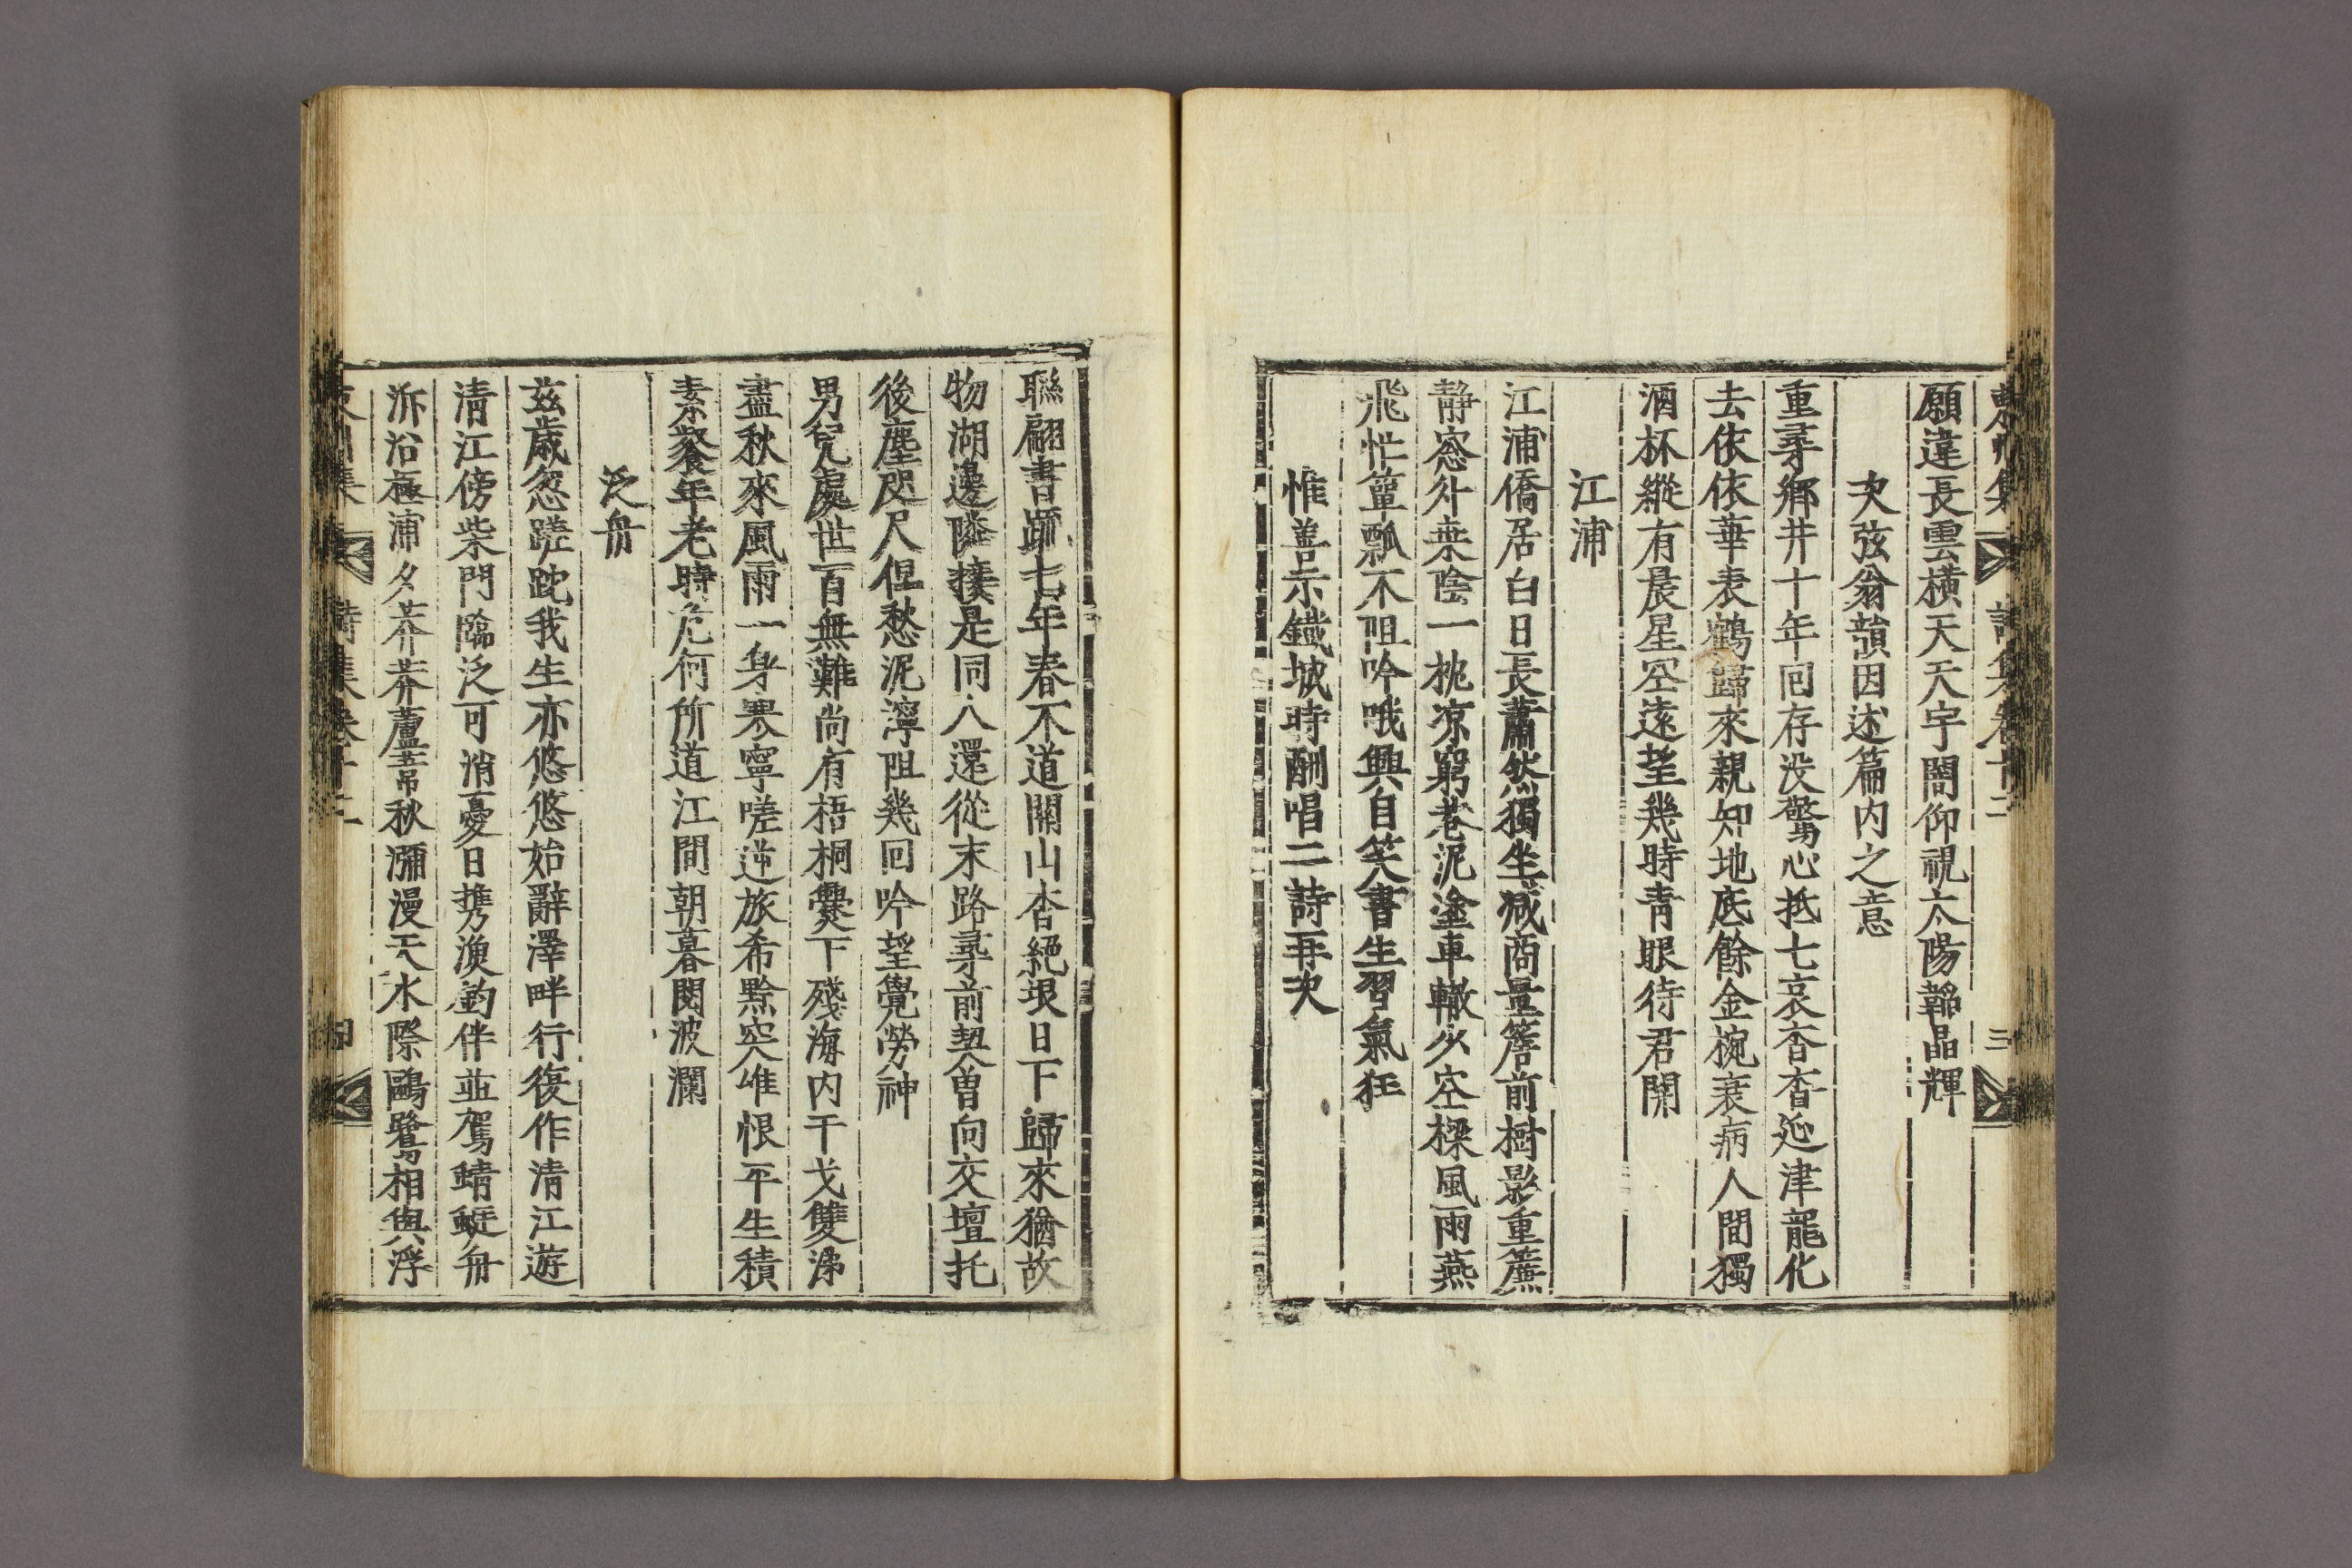 願違長雲橫天天宇闇仰視太陽韜晶輝
次弦翁韻因述篇內之意
重尋鄉井十年回存沒驚心抵七哀杳杳延津龍化
去依依華表鶴歸來親知地底餘金椀衰病人間獨
酒杯縱有晨星空遠望幾時靑眼待君開
江浦
江浦僑居白日長蕭然獨坐減商量簷前樹影重簾
靜窓外桒陰一枕凉窮巷泥塗車轍少空樑風雨燕
飛忙簞瓢不阻吟哦興自笑書生習氣狂
惟善示鐵城時酬唱二詩再次
聯翩書蹟七年春不道關山杳絕垠日下歸來猶故
物湖邊隣接是同人還從末路尋前契曾向交壇托
後塵咫尺但愁泥濘阻幾回吟望覺勞神
男兒處世百無難尙有梧桐爨下殘海內干戈雙涕
盡秋來風雨一身寒寧嗟逆旅希黔突唯恨平生積
素餐年老時危何所道江間朝暮閱波瀾
泛舟
玆歲忽蹉跎我生亦悠悠始辭澤畔行復作淸江遊
淸江傍柴門臨泛可消憂日携漁釣伴並駕蜻蜓舟
泝沿極浦夕莽莽蘆葦秋瀰漫天水際鷗鷺相與浮